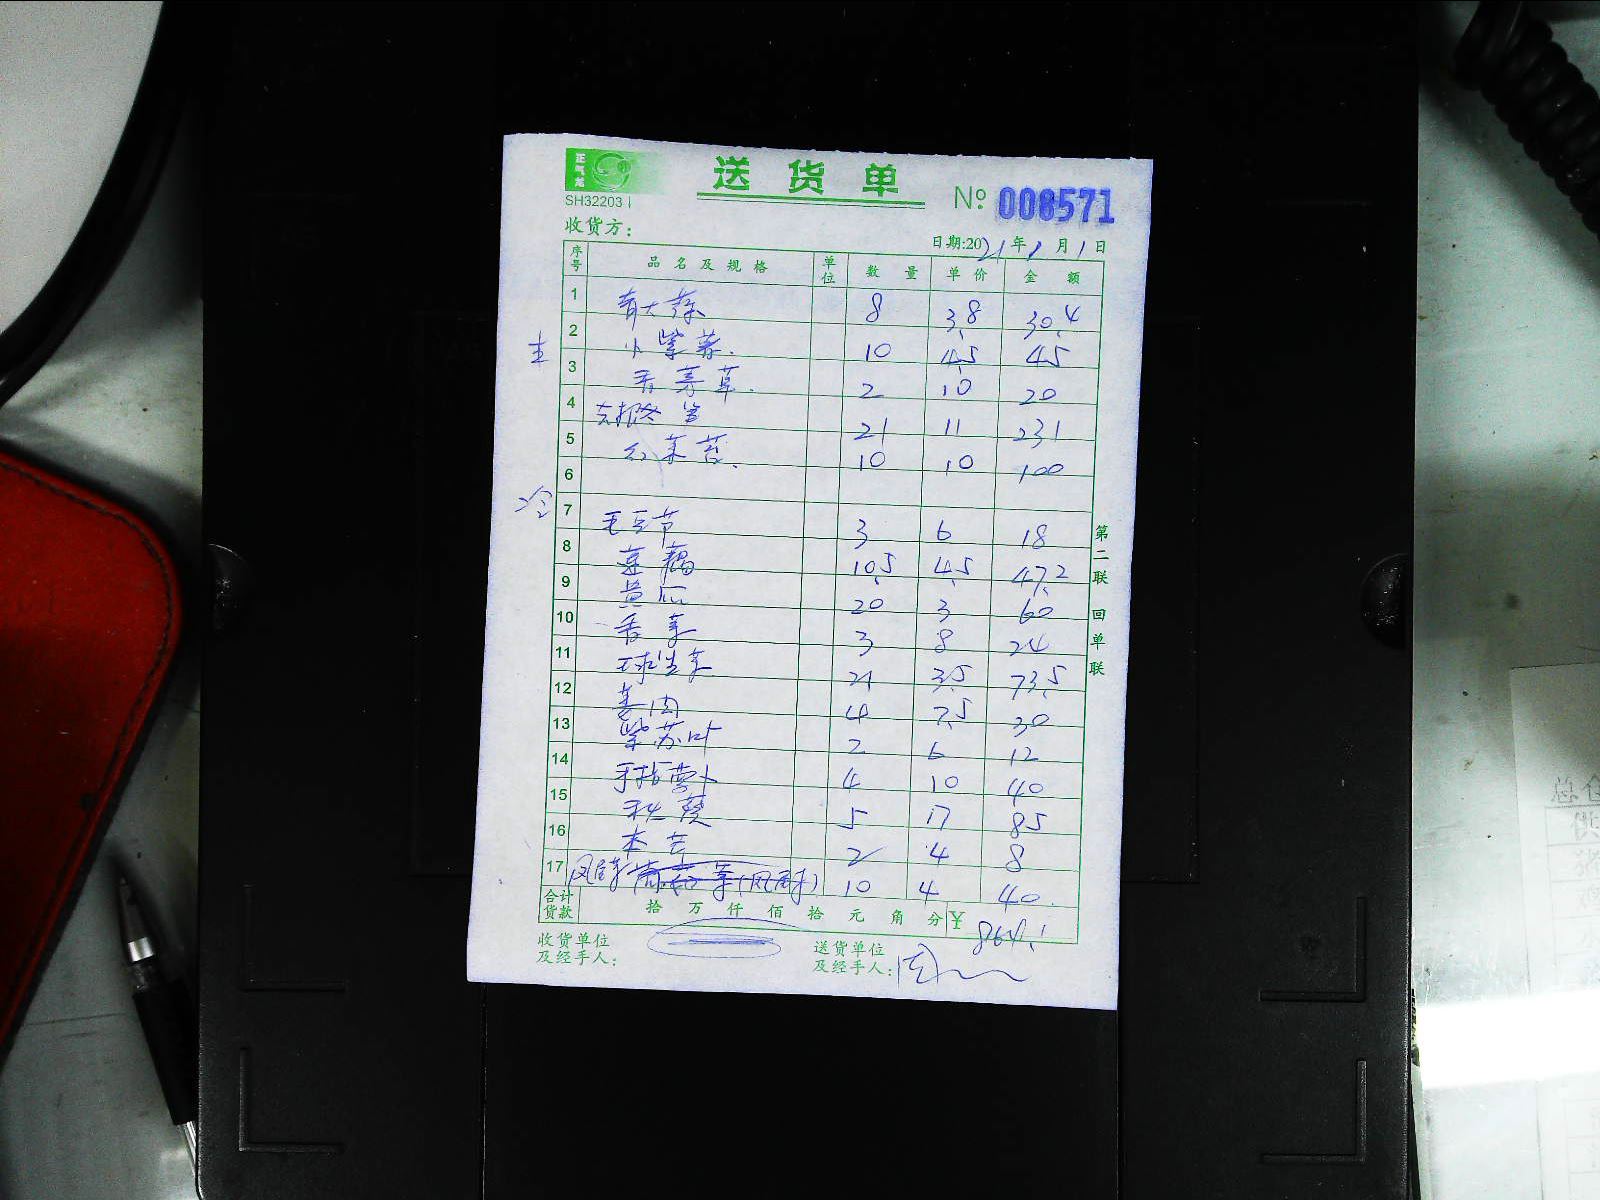 正气龙
送货单
SH32203
№ 008571
收货方:
日期:2021年1月1日
序号 品名及规格 单位 数量 单价 金额
1 青大蒜 8 3.8 30.4
主
2 小紫薯. 10 4.5 45
3 香茅草. 2 10 20
4 去根冬笋 21 11 231
5 红菜苔. 10 10 100
6
冷
7 毛豆节 3 6 18
8 莲藕 10.5 4.5 47.2
9 黄瓜 20 3 60
10 香菜 3 8 24
11 球生菜 21 3.5 73.5
12 姜肉 4 7.5 30
13 紫苏叶 2 6 12
14 手指萝卜 4 10 40
15 秋葵 5 17 85
16 本芹 2 4 8
17 10 4 40.
合计货款 拾 万 仟 佰 拾 元 角 分 ¥ 864.1
收货单位及经手人:
送货单位及经手人:
第二联 回单联